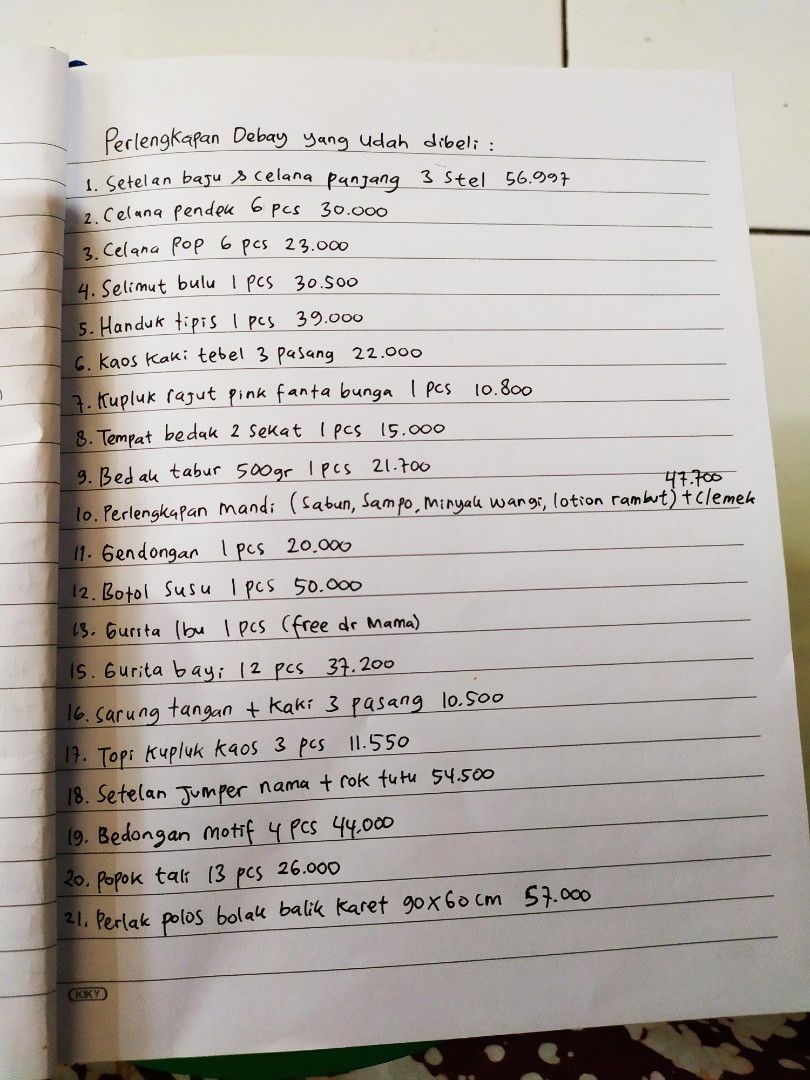 Perlengkapan Debay yang udah dibeli :
1. Setelan baju & celana panjang 3 stel 56.997
2. Celana pendek 6 pcs 30.000
3. Celana Pop 6 pcs 23.000
4. Selimut bulu 1 pcs 30.500
5. Handuk tipis 1 pcs 39.000
6. Kaos kaki tebel 3 pasang 22.000
7. Kupluk rajut pink fanta bunga 1 pcs 10.800
8. Tempat bedak 2 sekat 1 pcs 15.000
9. Bedak tabur 500gr 1 pcs 21.700
47.700
10. Perlengkapan mandi (sabun, sampo, minyak wangi, lotion rambut) + Clemek
11. Gendongan 1 pcs 20.000
12. Botol susu 1 pcs 50.000
13. Gurita Ibu 1 pcs (free dr Mama)
15. Gurita bayi 12 pcs 37.200
16. Sarung tangan + kaki 3 pasang 10.500
17. Topi kupluk kaos 3 pcs 11.550
18. Setelan Jumper nama + rok tutu 54.500
19. Bedongan motif 4 pcs 44.000
20. Popok tali 13 pcs 26.000
21. Perlak polos bolak balik karet 90x60 cm 57.000
KIKY